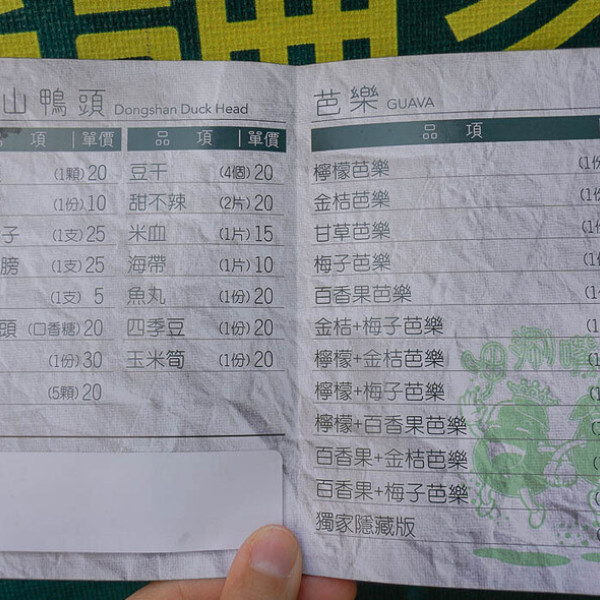 山鴨頭 Dongshan Duck Head
項 單價 品 項 單價
(1顆) 20 豆干 (4個) 20
(1份) 10 甜不辣 (2片) 20
子 (1支) 25 米血 (1片) 15
膀 (1支) 25 海帶 (1片) 10
(1支) 5 魚丸 (1份) 20
頭 (口香糖) 20 四季豆 (1份) 20
(1份) 30 玉米筍 (1份) 20
(5顆) 20
芭樂 GUAVA
品 項
檸檬芭樂 (1份
金桔芭樂 (1份
甘草芭樂 (1份
梅子芭樂 (1份
百香果芭樂 (1
金桔+梅子芭樂 (1
檸檬+金桔芭樂 (1
檸檬+梅子芭樂 (1
檸檬+百香果芭樂
百香果+金桔芭樂
百香果+梅子芭樂
獨家隱藏版